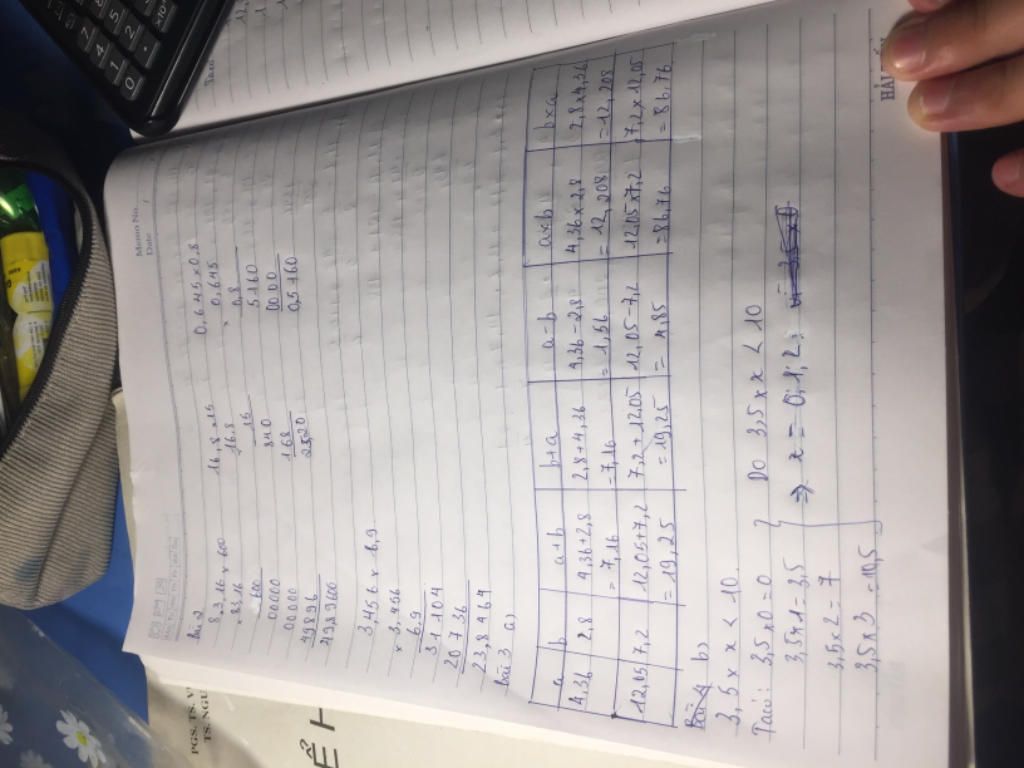 Memo No.
Date
Bài 2
83,16 x 600
x 83,16
600
00000
00000
49896
49,89600
16,8 x 15
16,8
15
840
168
0,645 x 0,8
x 0,645
0,8
5160
0000
0,5160
3,456 x 6,9
x 3,456
6,9
31104
20736
23,8464
bài 3 a)
a b a+b b+a a-b a x b b x a
4,36 2,8 4,36+2,8 2,8+4,36 4,36-2,8 4,36 x 2,8 2,8 x 4,36
= 7,16 = 7,16 = 1,56 = 12,208 = 12,208
12,05 7,2 12,05+7,2 7,2+12,05 12,05-7,2 12,05 x 7,2 7,2 x 12,05
= 19,25 = 19,25 = 4,85 = 86,76 = 86,76
b)
3,5 x x < 10
Ta có: 3,5 x 0 = 0
3,5 x 1 = 3,5
3,5 x 2 = 7
3,5 x 3 = 10,5
DO 3,5 x x < 10
=> x = 0; 1; 2;
HẢI
PGS.TS. V
TS. NGU
Ể H